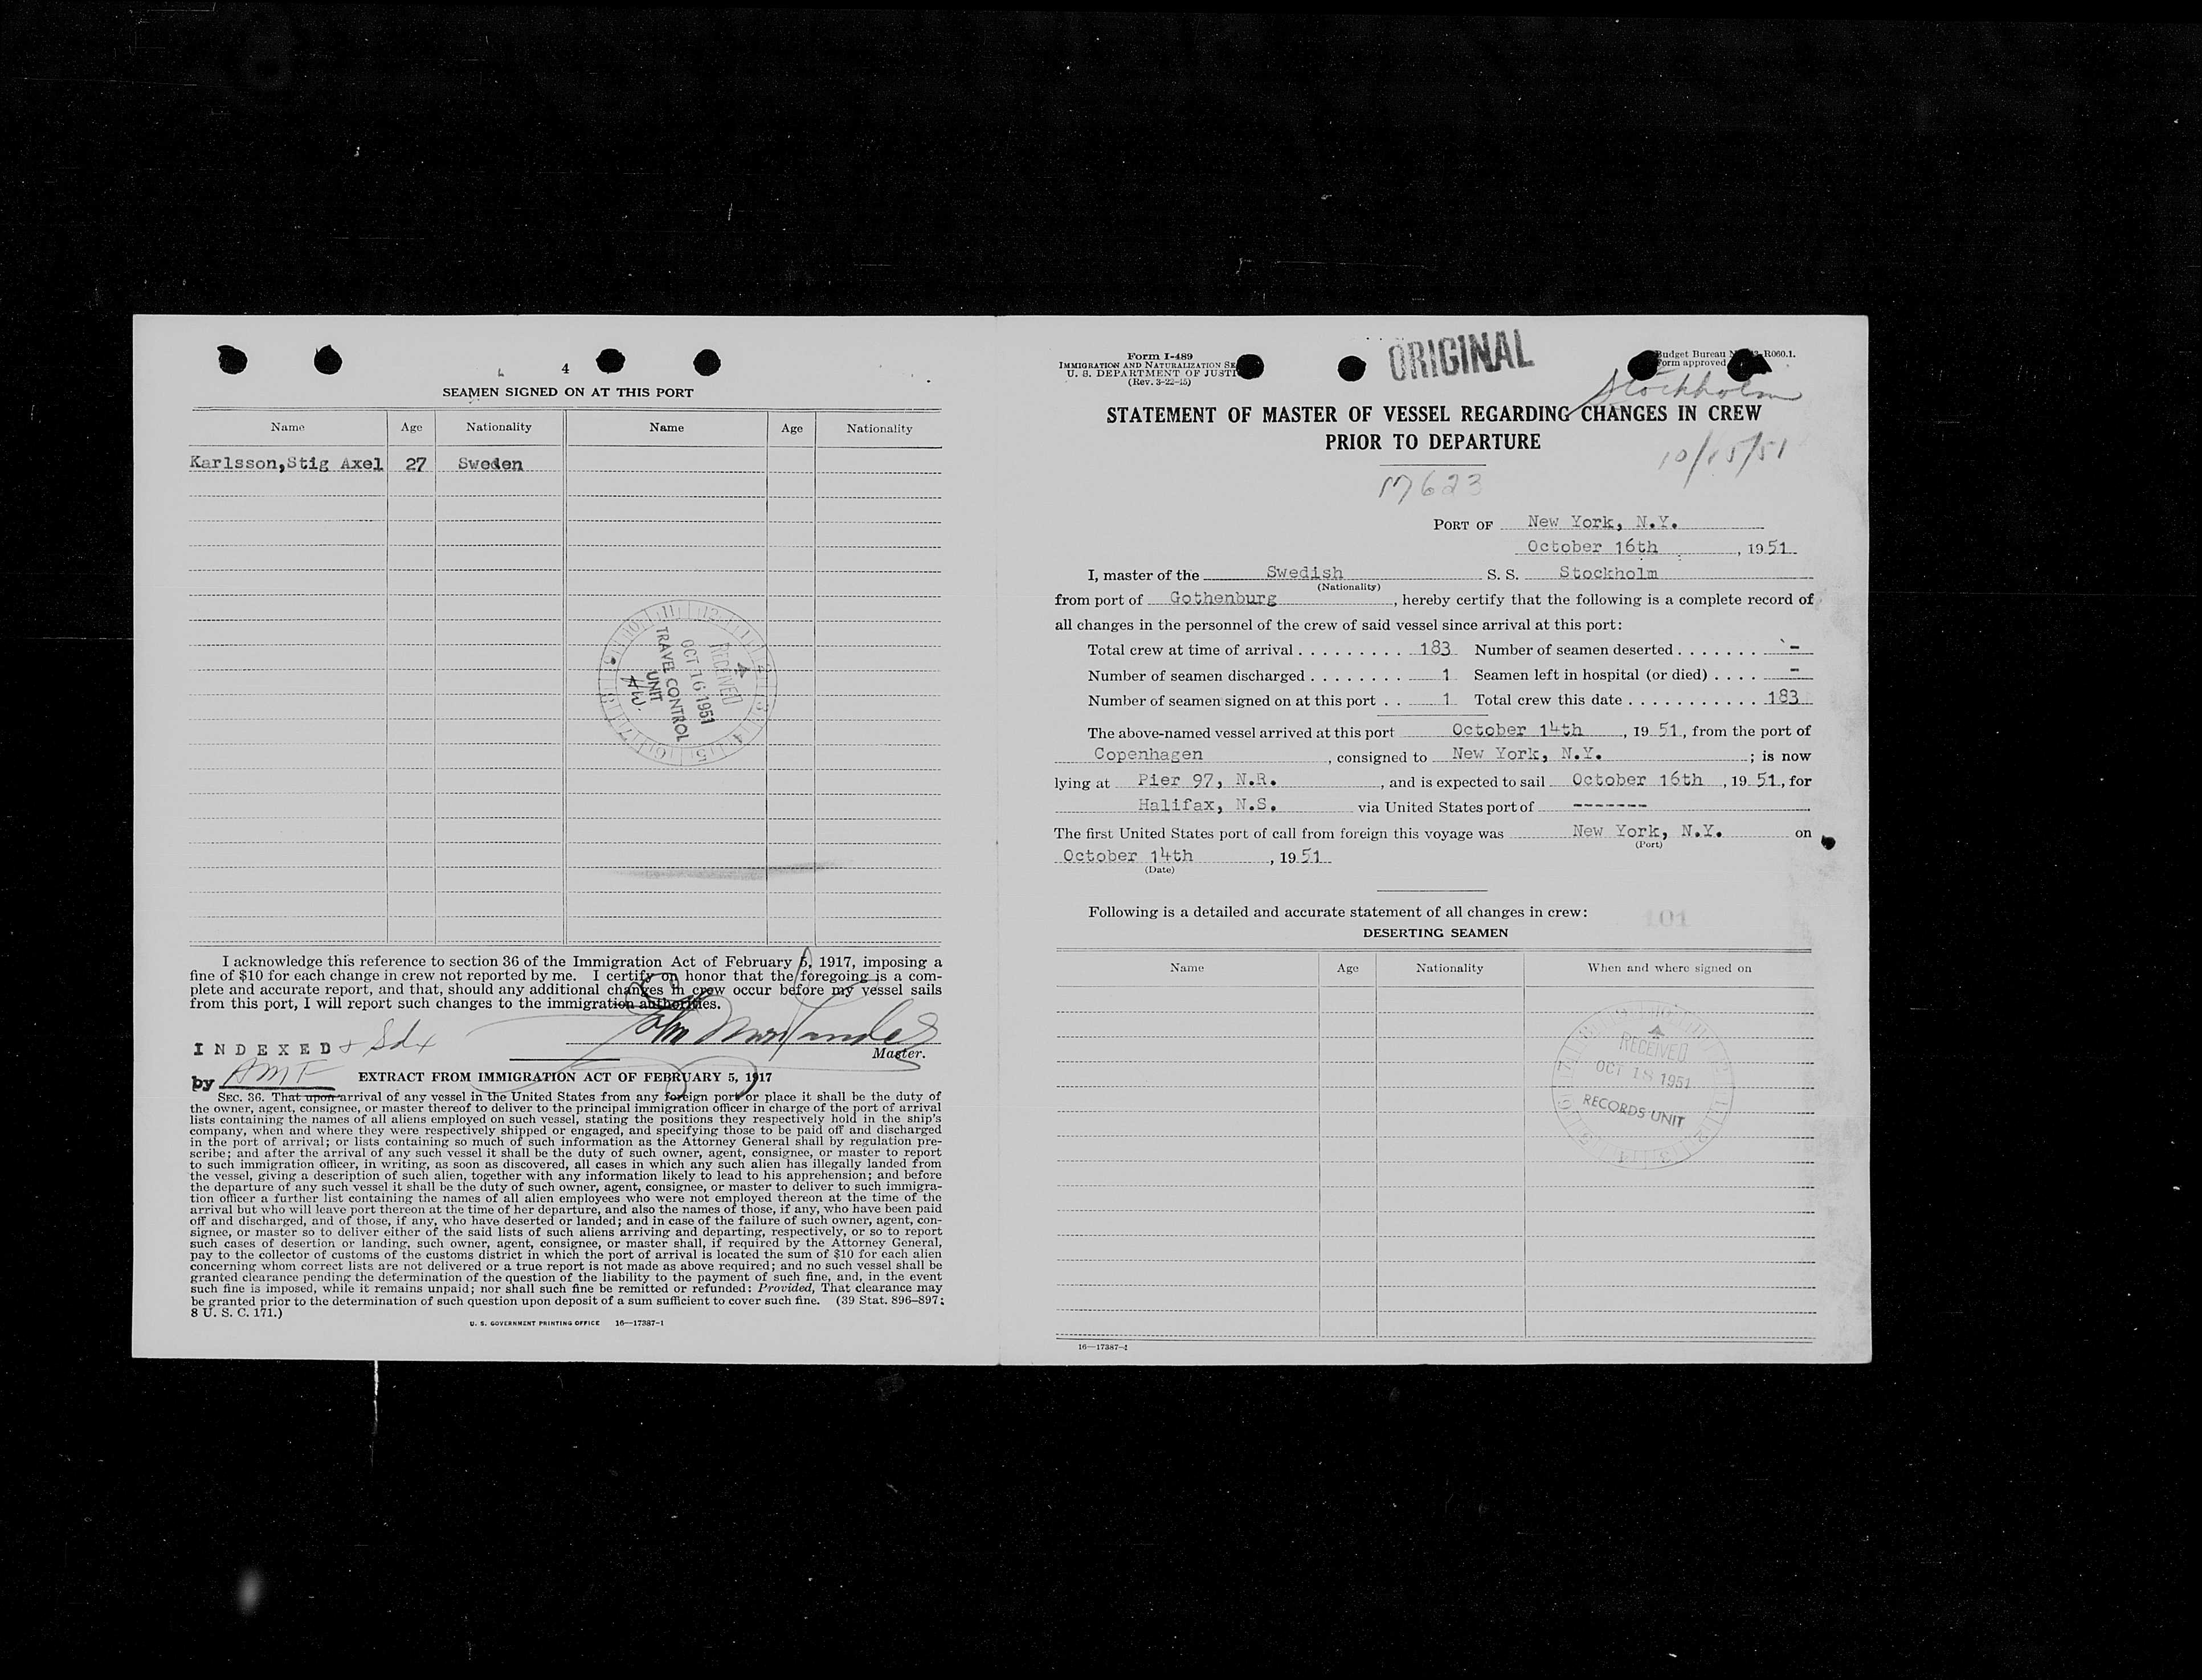 4
SEAMEN SIGNED ON AT THIS PORT
Name Age Nationality Name Age Nationality
Karlsson,Stig Axel 27 Sweden
RECEIVED
OCT 16 1951
TRAVEL CONTROL
UNIT
I acknowledge this reference to section 36 of the Immigration Act of February 5, 1917, imposing a
fine of $10 for each change in crew not reported by me. I certify on honor that the foregoing is a com-
plete and accurate report, and that, should any additional changes in crew occur before my vessel sails
from this port, I will report such changes to the immigration authorities.
Master.
INDEXED
by AMF
EXTRACT FROM IMMIGRATION ACT OF FEBRUARY 5, 1917
SEC. 36. That upon arrival of any vessel in the United States from any foreign port or place it shall be the duty of
the owner, agent, consignee, or master thereof to deliver to the principal immigration officer in charge of the port of arrival
lists containing the names of all aliens employed on such vessel, stating the positions they respectively hold in the ship's
company, when and where they were respectively shipped or engaged, and specifying those to be paid off and discharged
in the port of arrival; or lists containing so much of such information as the Attorney General shall by regulation pre-
scribe; and after the arrival of any such vessel it shall be the duty of such owner, agent, consignee, or master to report
to such immigration officer, in writing, as soon as discovered, all cases in which any such alien has illegally landed from
the vessel, giving a description of such alien, together with any information likely to lead to his apprehension; and before
the departure of any such vessel it shall be the duty of such owner, agent, consignee, or master to deliver to such immigra-
tion officer a further list containing the names of all alien employees who were not employed thereon at the time of the
arrival but who will leave port thereon at the time of her departure, and also the names of those, if any, who have been paid
off and discharged, and of those, if any, who have deserted or landed; and in case of the failure of such owner, agent, con-
signee, or master so to deliver either of the said lists of such aliens arriving and departing, respectively, or so to report
such cases of desertion or landing, such owner, agent, consignee, or master shall, if required by the Attorney General,
pay to the collector of customs of the customs district in which the port of arrival is located the sum of $10 for each alien
concerning whom correct lists are not delivered or a true report is not made as above required; and no such vessel shall be
granted clearance pending the determination of the question of the liability to the payment of such fine, and, in the event
such fine is imposed, while it remains unpaid; nor shall such fine be remitted or refunded: Provided, That clearance may
be granted prior to the determination of such question upon deposit of a sum sufficient to cover such fine. (39 Stat. 896–897;
8 U. S. C. 171.)
U. S. GOVERNMENT PRINTING OFFICE 16—17387-1
Form I-489
IMMIGRATION AND NATURALIZATION SE
U. S. DEPARTMENT OF JUSTI
(Rev. 3-22-45)
ORIGINAL
Budget Bureau R060.1.
Form approved
Stockholm
STATEMENT OF MASTER OF VESSEL REGARDING CHANGES IN CREW
PRIOR TO DEPARTURE
10/15/51
17623
PORT OF New York, N.Y.
October 16th, 1951
I, master of the Swedish S. S. Stockholm
(Nationality)
from port of Gothenburg, hereby certify that the following is a complete record of
all changes in the personnel of the crew of said vessel since arrival at this port:
Total crew at time of arrival . . . . . . . . . 183 Number of seamen deserted . . . . . . . -
Number of seamen discharged . . . . . . . . 1 Seamen left in hospital (or died) . . . . -
Number of seamen signed on at this port . . 1 Total crew this date . . . . . . . . . . . 183
The above-named vessel arrived at this port October 14th, 1951, from the port of
Copenhagen, consigned to New York, N.Y.; is now
lying at Pier 97, N.R., and is expected to sail October 16th, 1951, for
Halifax, N.S. via United States port of -------
The first United States port of call from foreign this voyage was New York, N.Y. on
(Port)
October 14th, 1951
(Date)
Following is a detailed and accurate statement of all changes in crew:
101
DESERTING SEAMEN
Name Age Nationality When and where signed on
RECEIVED
OCT 18 1951
RECORDS UNIT
16—17387-1